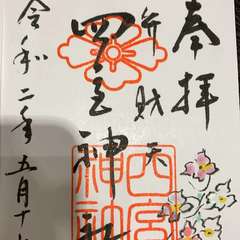 奉拝
弁財天
四宮神社
令和二年五月十
四宮
神社